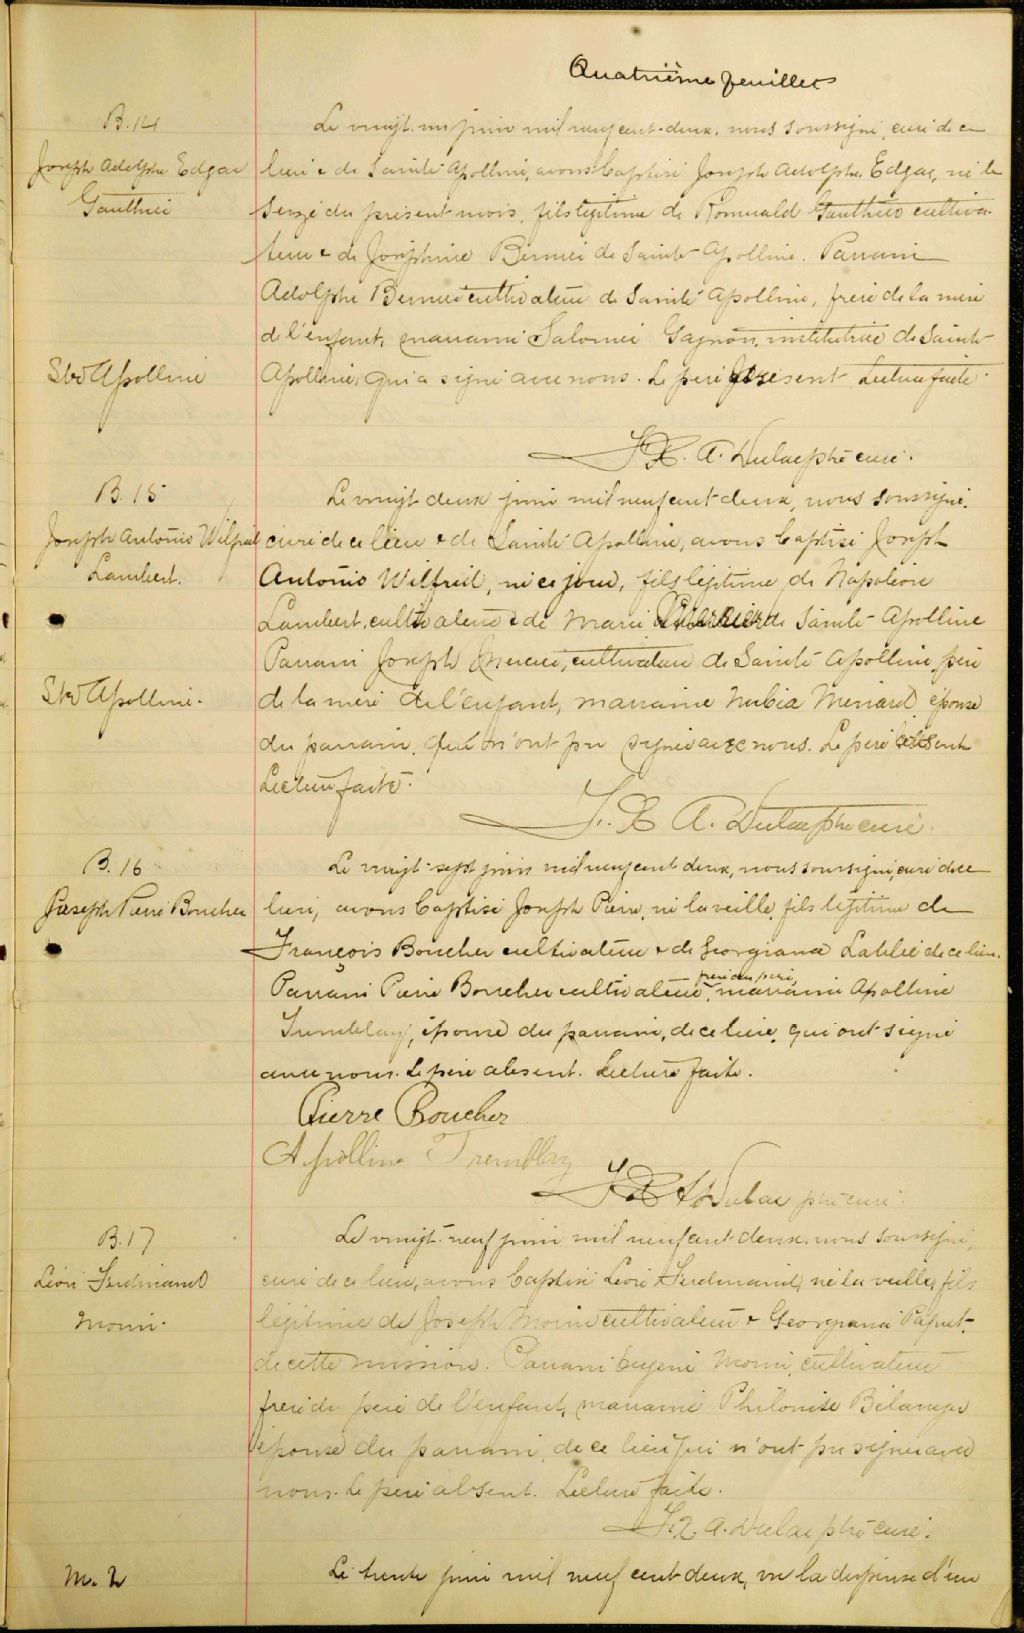 Quatrième feuillet
B. 14
Joseph Adolphe Edgar
Gauthier
Ste Apolline
Le vingt-un juin mil neuf cent-deux, nous soussigné, curé de ce
lieu & de Sainte Apolline, avons baptisé Joseph Adolphe Edgar, né le
seize du présent mois, fils légitime de Romuald Gauthier cultiva-
teur & de Joséphine Bernier de Sainte Apolline. Parrain
Adolphe Bernier cultivateur de Sainte Apolline, frère de la mère
de l'enfant, marraine Salomée Gagnon, institutrice de Sainte
Apolline, qui a signé avec nous. Le père présent. Lecture faite.
F. X. A. Dulac ptre curé.
B. 15
Joseph Antonio Wilfrid
Lambert.
Ste Apolline.
Le vingt deux juin mil neuf cent deux, nous soussigné,
curé de ce lieu & de Sainte Apolline, avons baptisé Joseph
Antonio Wilfrid, né ce jour, fils légitime de Napoléon
Lambert, cultivateur & de Marie de Sainte Apolline
Parrain Joseph Mercier, cultivateur de Sainte Apolline, père
de la mère de l'enfant, marraine épouse
du parrain, qui n'ont pu signer avec nous. Le père
Lecture faite.
F. X. A. Dulac ptre curé.
B. 16
Joseph Pierre Boucher
Le vingt-sept juin mil neuf cent deux, nous soussigné, curé de ce
lieu, avons baptisé Joseph Pierre, né la veille, fils légitime de
François Boucher cultivateur & de Georgiana de ce lieu.
Parrain Pierre Boucher cultivateur, frère du père, marraine Apolline
Tremblay, épouse du parrain, de ce lieu, qui ont signé
avec nous. Le père absent. Lecture faite.
Pierre Boucher
Apolline Tremblay
F. X. A. Dulac ptre curé.
B. 17
Léon Ferdinand
Morin.
Le vingt-neuf juin mil neuf cent deux, nous soussigné,
curé de ce lieu, avons baptisé Léon Ferdinand, né la veille, fils
légitime de Joseph Morin cultivateur & Georgiana Paquet
de cette mission. Parrain Eugène Morin, cultivateur
frère du père de l'enfant, marraine Philomise Bélanger
épouse du parrain, de ce lieu qui n'ont pu signer avec
nous. Le père absent. Lecture faite.
F. X. A. Dulac ptre curé.
M. 2
Le trente juin mil neuf cent deux, vu la dispense d'un